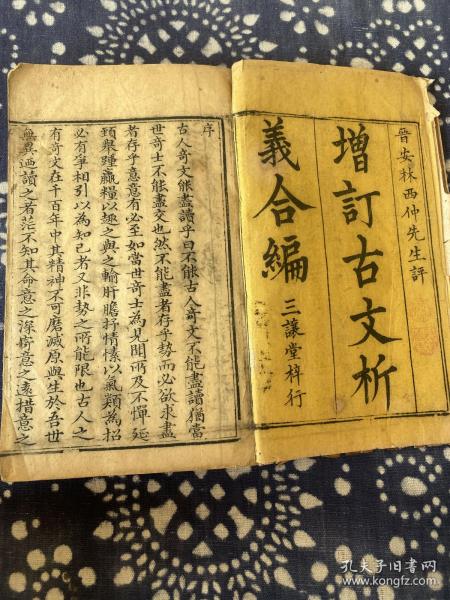 晉安林西仲先生評
增訂古文析
義合編
三讓堂梓行
序
古人奇文能盡讀乎曰不能古人奇文不能盡讀猶當
世奇士不能盡交也然不能盡者存乎勢而必欲求盡
者存乎意意有必至如當世奇士為見聞所及不憚延
頸舉踵贏糧以趨之與之輸肝膽抒情愫以氣類為招
必有爭相引以為知己者又非勢之所能限也古人之
有奇文在千百年中其精神不可磨滅原與生於吾世
無異迺讀之者茫不知其命意之深寄意之遠措意之
孔夫子旧书网
www.kongfz.com